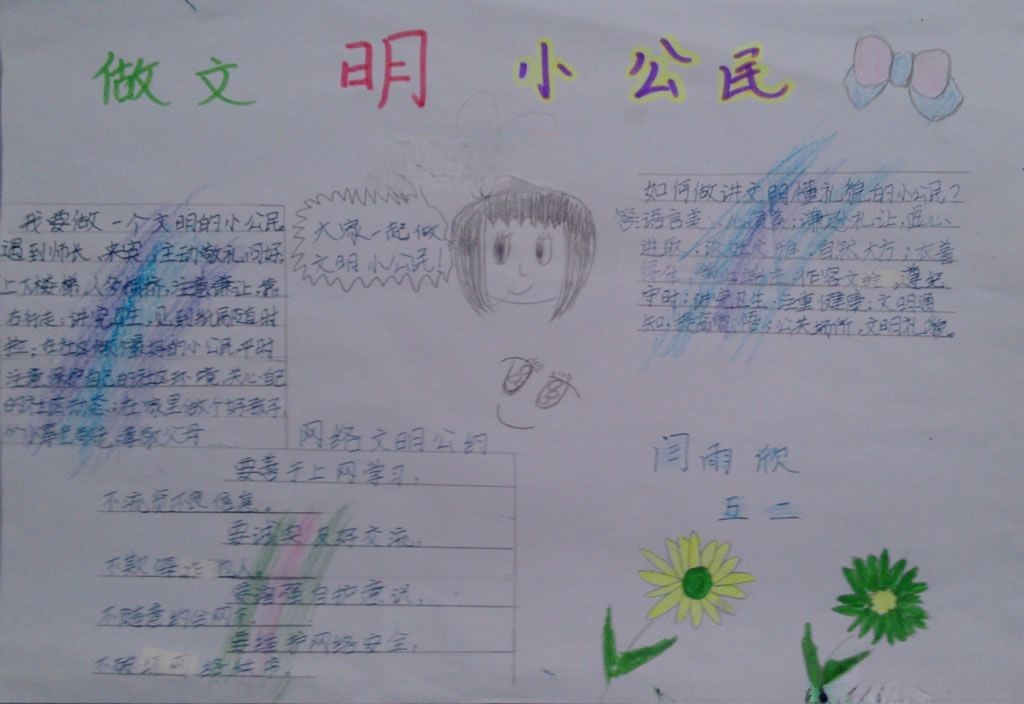 做文明小公民
我要做一个文明的小公民
遇到师长、来宾,主动敬礼问好
上下楼梯,人多拥挤,注意谦让,靠
右行走;讲究卫生,见到纸屑随时
捡;在社区做个最好的小公民平时
注意保护自己的社区环境,关心自己
的社区动态;在家里做个好孩子,
尊敬父母……
大家一起做
文明小公民!
如何做讲文明懂礼貌的小公民?
答:语言美,心灵美;谦逊礼让,虚心
进取;谈吐文雅,自然大方;衣着
得体,作客文明,遵纪
守时;讲究卫生,注重健康;文明通
知,提高警惕;公共场所,文明礼貌。
网络文明公约
要善于上网学习,
不浏览不良信息。
要诚实友好交流,
不欺侮诈他人。
要增强自护意识,
不随意约会网友。
要维护网络安全,
不破坏网络秩序。
闫雨欣
五 二